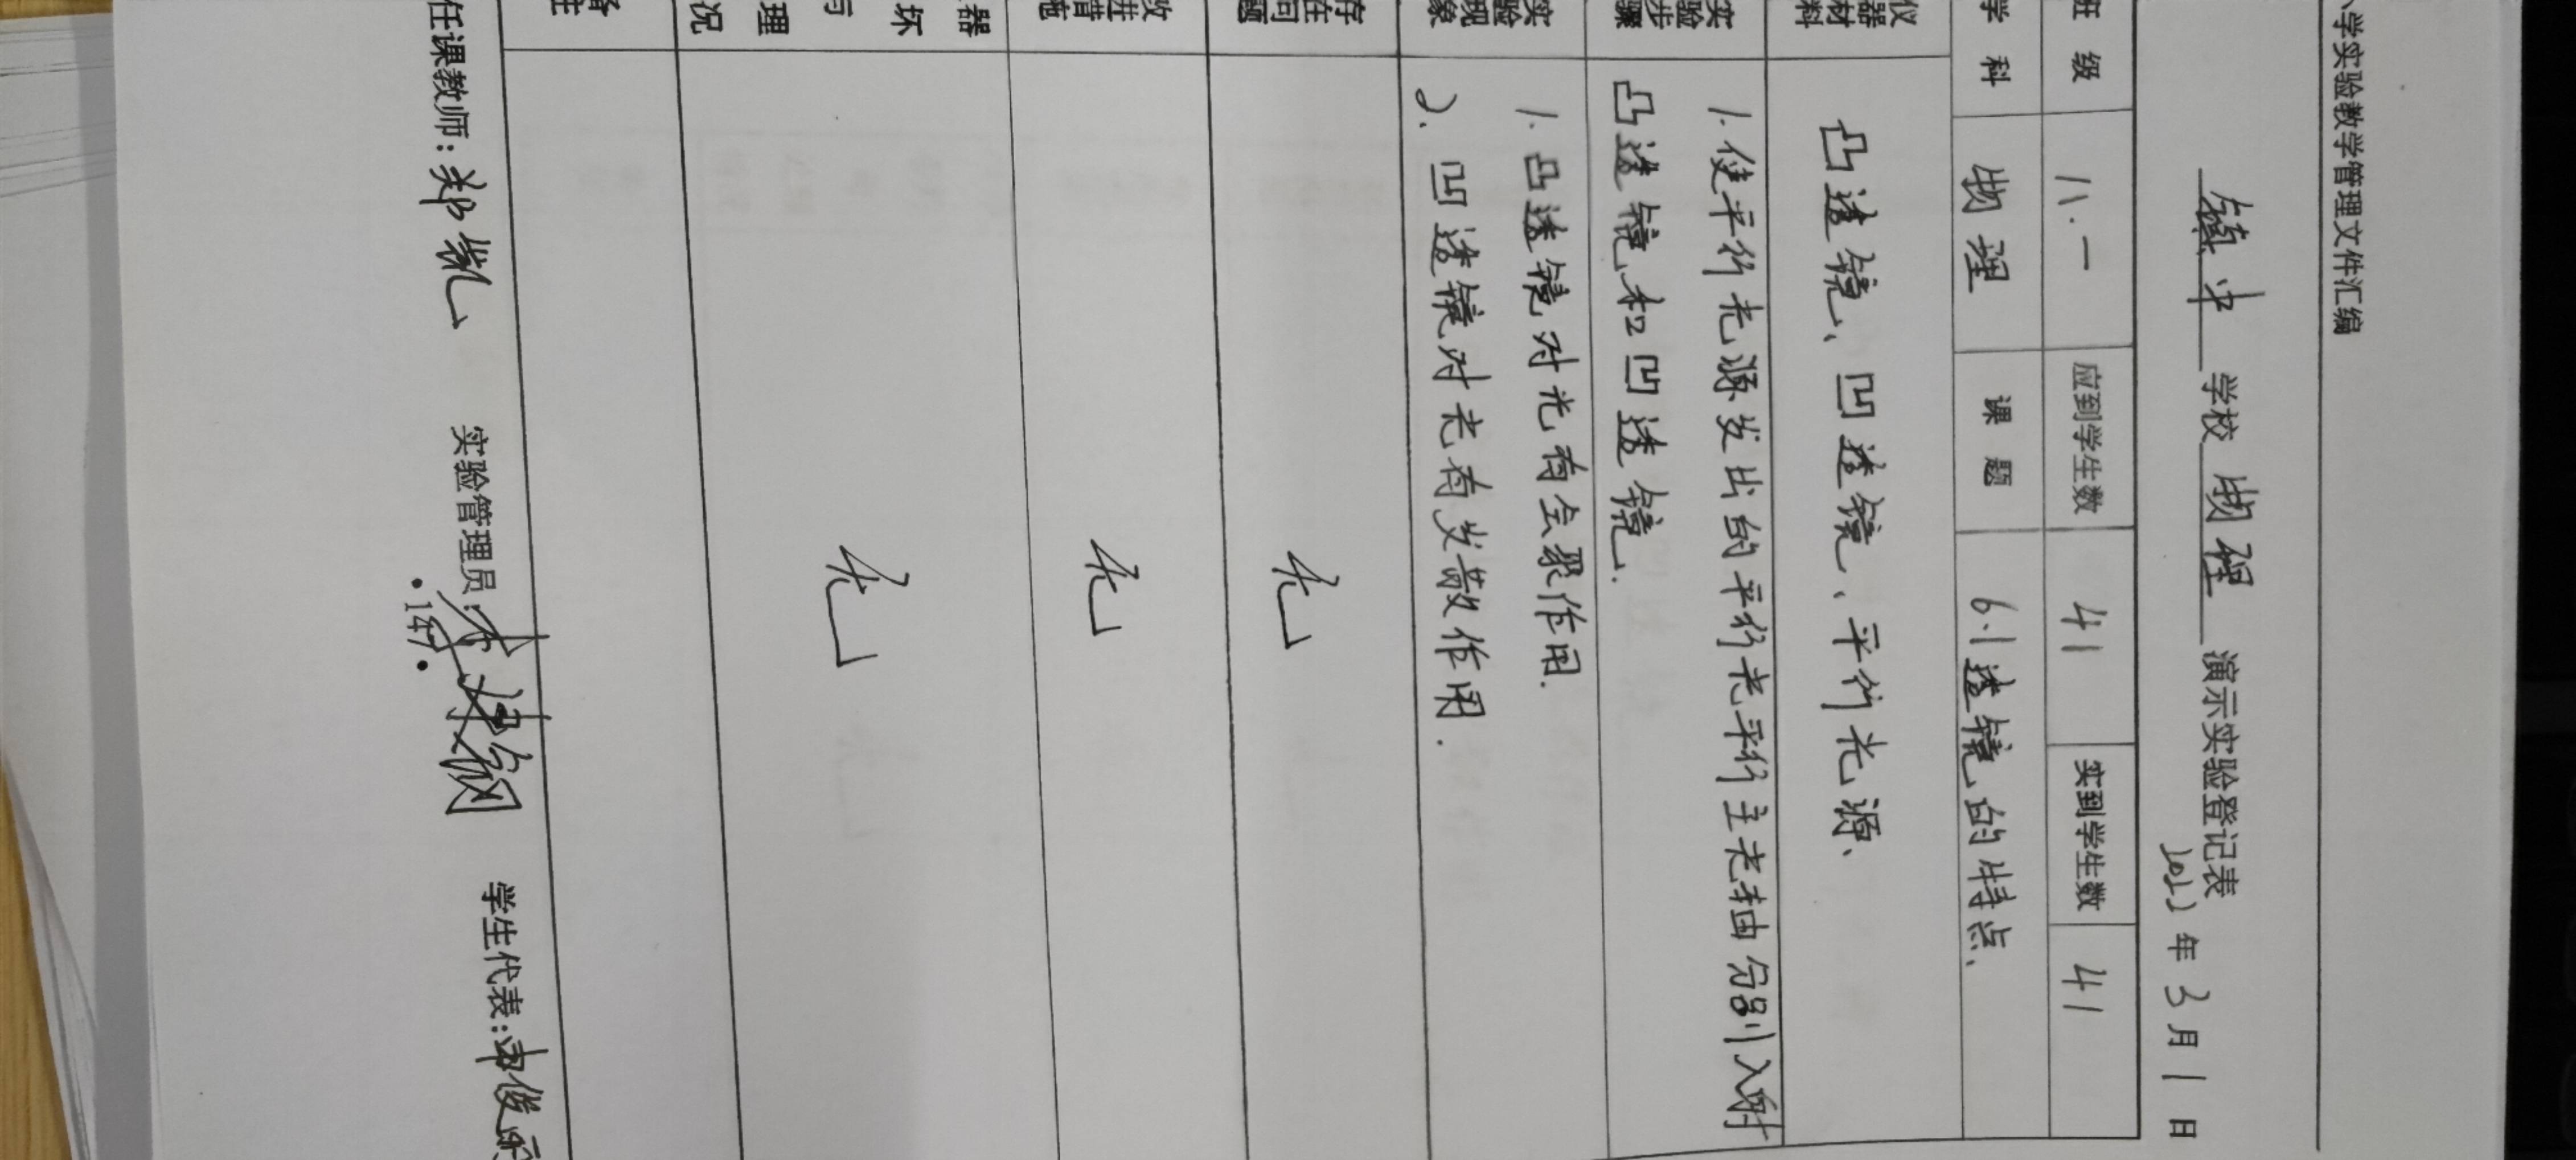 小学实验教学管理文件汇编
镇中 学校 物理 演示实验登记表
2022年3月1日
班级 八.一 应到学生数 41 实到学生数 41
学科 物理 课题 6.1透镜的特点、
仪器材料 凸透镜、凹透镜、平行光源、
实验步骤 1.使平行光源发出的平行光平行主光轴分别入射
凸透镜和凹透镜.
实验现象 1.凸透镜对光有会聚作用.
2.凹透镜对光有发散作用.
存在问题 无
改进措施 无
器 坏 与 理 况 无
备注
任课教师:郑凯 实验管理员: 学生代表:
·147·